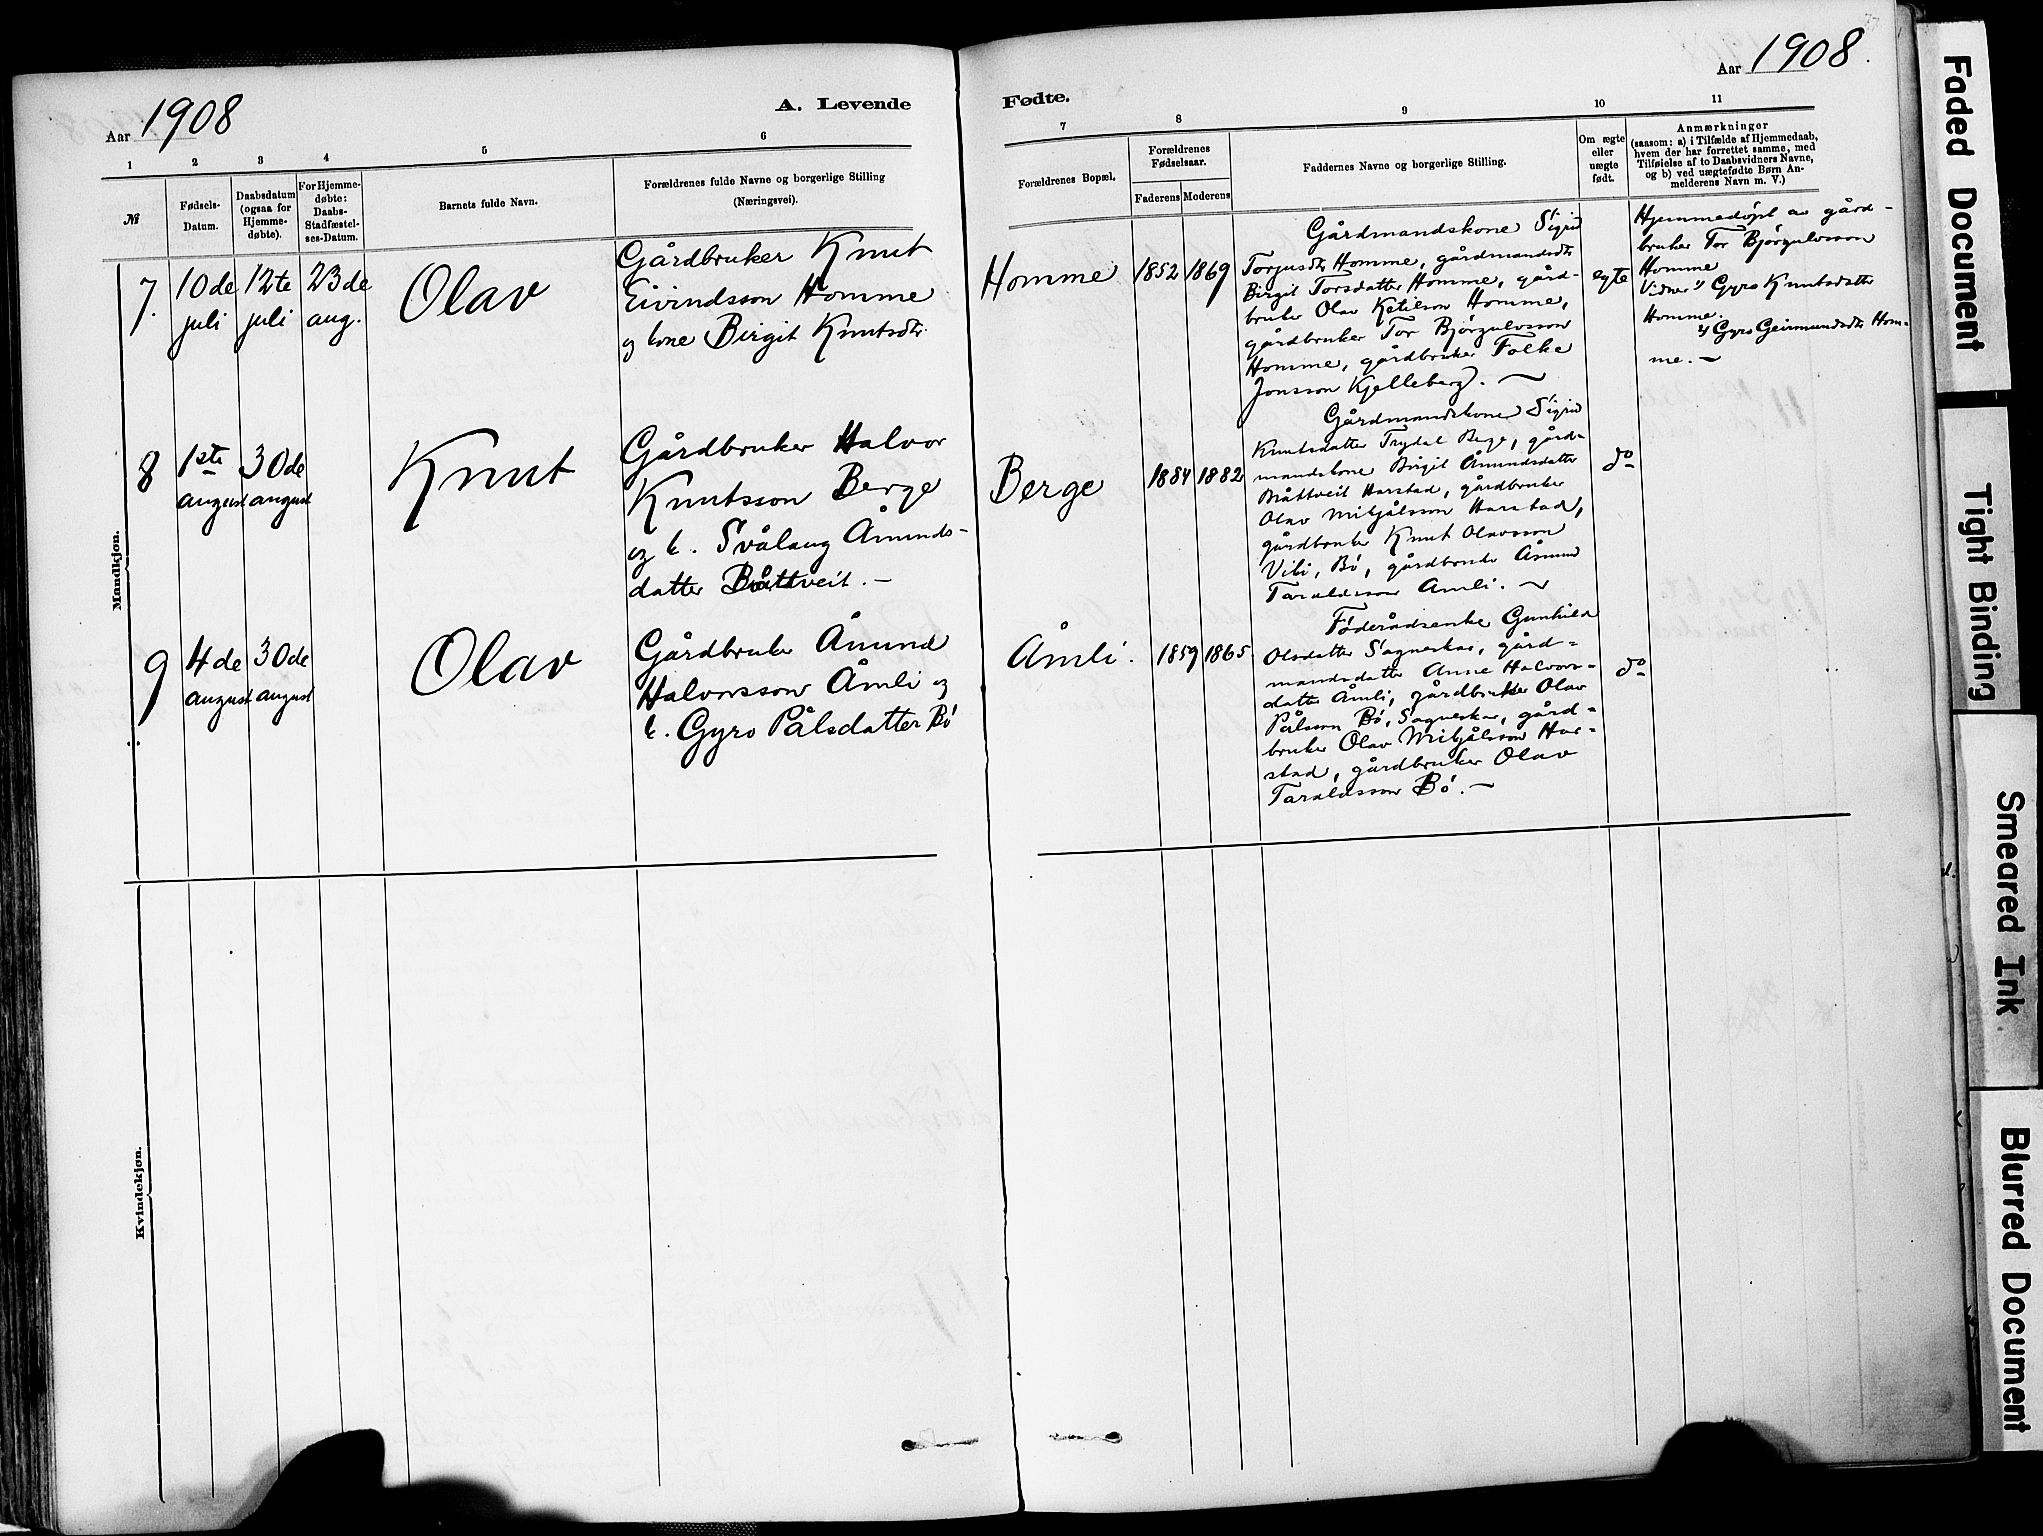 Aar 1908
A. Levende
1
2
3
4
5
6
№
Fødsels-
Datum.
Daabsdatum
(ogsaa for
Hjemme-
døbte).
For Hjemme-
døbte:
Daabs-
Stadfæstel-
ses-Datum.
Barnets fulde Navn.
Forældrenes fulde Navne og borgerlige Stilling
(Næringsvei).
Mandkjøn.
7.
10de
juli
12te
juli
23de
aug.
Olav
Gårdbruker Knut
Eivindsson Homme
og kone Birgit Knutsdtr.
8
1ste
august
30de
august
Knut
Gårdbruker Halvor
Knutsson Berge
og k. Svålaug Åmunds-
datter Båttveit. —
9
4de
august
30de
august
Olav
Gårdbruker Åmund
Halvorsson Åmli og
k. Gyro Pålsdatter Bö
Kvindekjøn.
Fødte.
Aar 1908.
77
7
8
9
10
11
Forældrenes Bopæl.
Forældrenes
Fødselsaar.
Faderens
Moderens
Faddernes Navne og borgerlige Stilling.
Om ægte
eller
uægte
født.
Anmærkninger
(saasom: a) i Tilfælde af Hjemmedaab,
hvem der har forrettet samme, med
Tilføielse af to Daabsvidners Navne,
og b) ved uægtefødte Børn An-
melderens Navn m. V.)
Homme
1852
1869
Gårdmandskone Sigrid
Torjusdtr Homme, gårdmandsdtr
Birgit Torsdatter Homme, gård-
bruker Olav Ketilson Homme,
gårdbruker Tor Bjørgulvsson
Homme, gårdbruker Folke
Jonsson Kjelleberg. —
egte
Hjemmedöpt av gård-
bruker Tor Bjørgulvsson
Homme
Vidner 1) Gyro Knutsdatter
Homme.
2) Gyro Geirmundsdtr Hom-
me. —
Berge
1884
1882
Gårdmandskone Sigrid
Knutsdatter Trydal Berge, gård-
mandskone Birgit Åmundsdatter
Båttveit Harstad, gårdbruker
Olav Mikjålsson Harstad,
gårdbruker Knut Olavsson
Viki, Bö, gårdbruker Åmund
Taraldsson Åmli. —
do
Åmli.
1859
1865
Föderådsenke Gunhild
Olsdatter Sagneskar, gård-
mandsdatter Anne Halvors-
datter Åmli, gårdbruker Olav
Pålsson Bö, Sagneskar, gård-
bruker Olav Mikjålsson Har-
stad, gårdbruker Olav
Taraldsson Bö. —
do
Faded Document
Tight Binding
Smeared Ink
Blurred Document